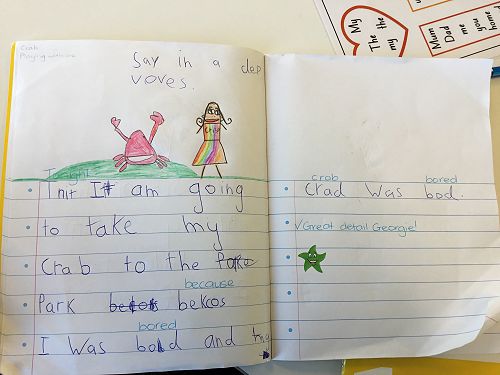 Crab
Playing with me
Say in a dep
voves.
Tonight
Tnit It am going
to take my
Crab to the Park
because
Park bekos bekcos
bored
I was bad and my
crab bored
Crad was bod.
√Great detail Georgie!
My
The the
my
Mum
Dad
me
you
home